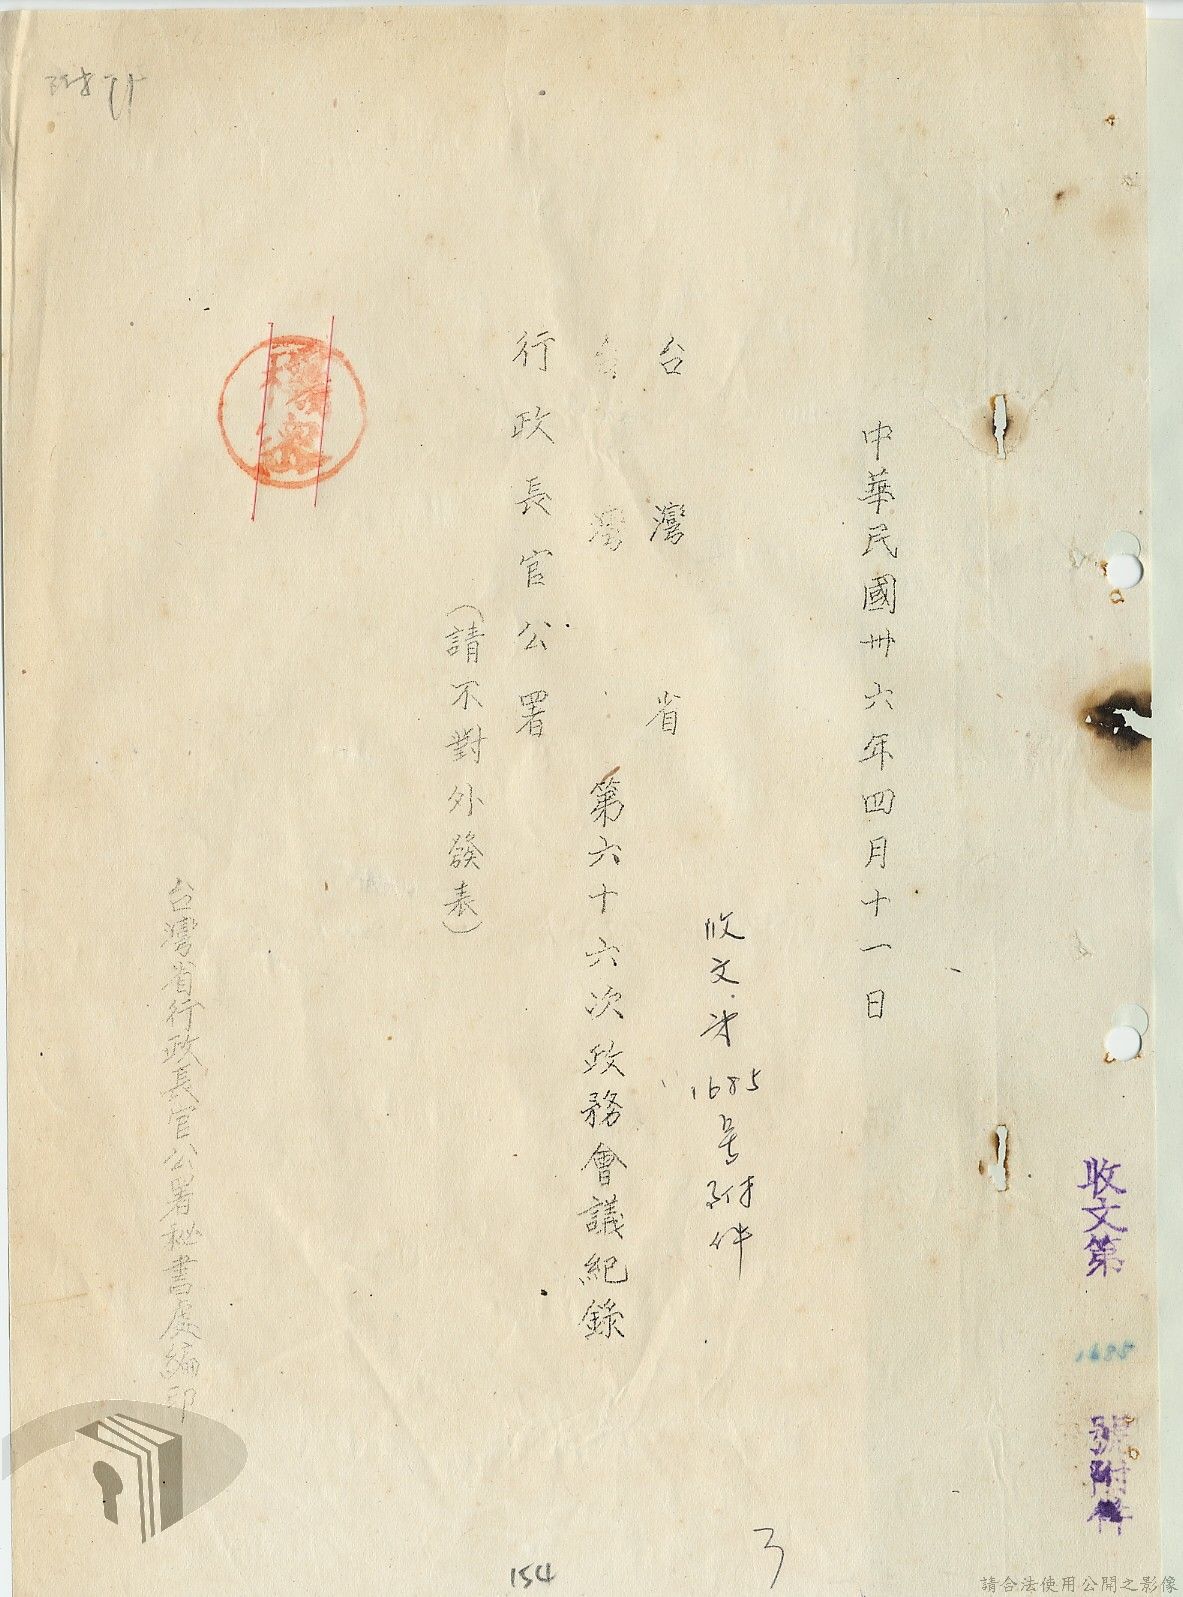 收文第
1685
號附件
中華民國卅六年四月十一日
收文第1685号附件
台灣省
台灣
行政長官公署
第六十六次政務會議紀錄
(請不對外發表)
台灣省行政長官公署秘書處編印
154
3
請合法使用公開之影像